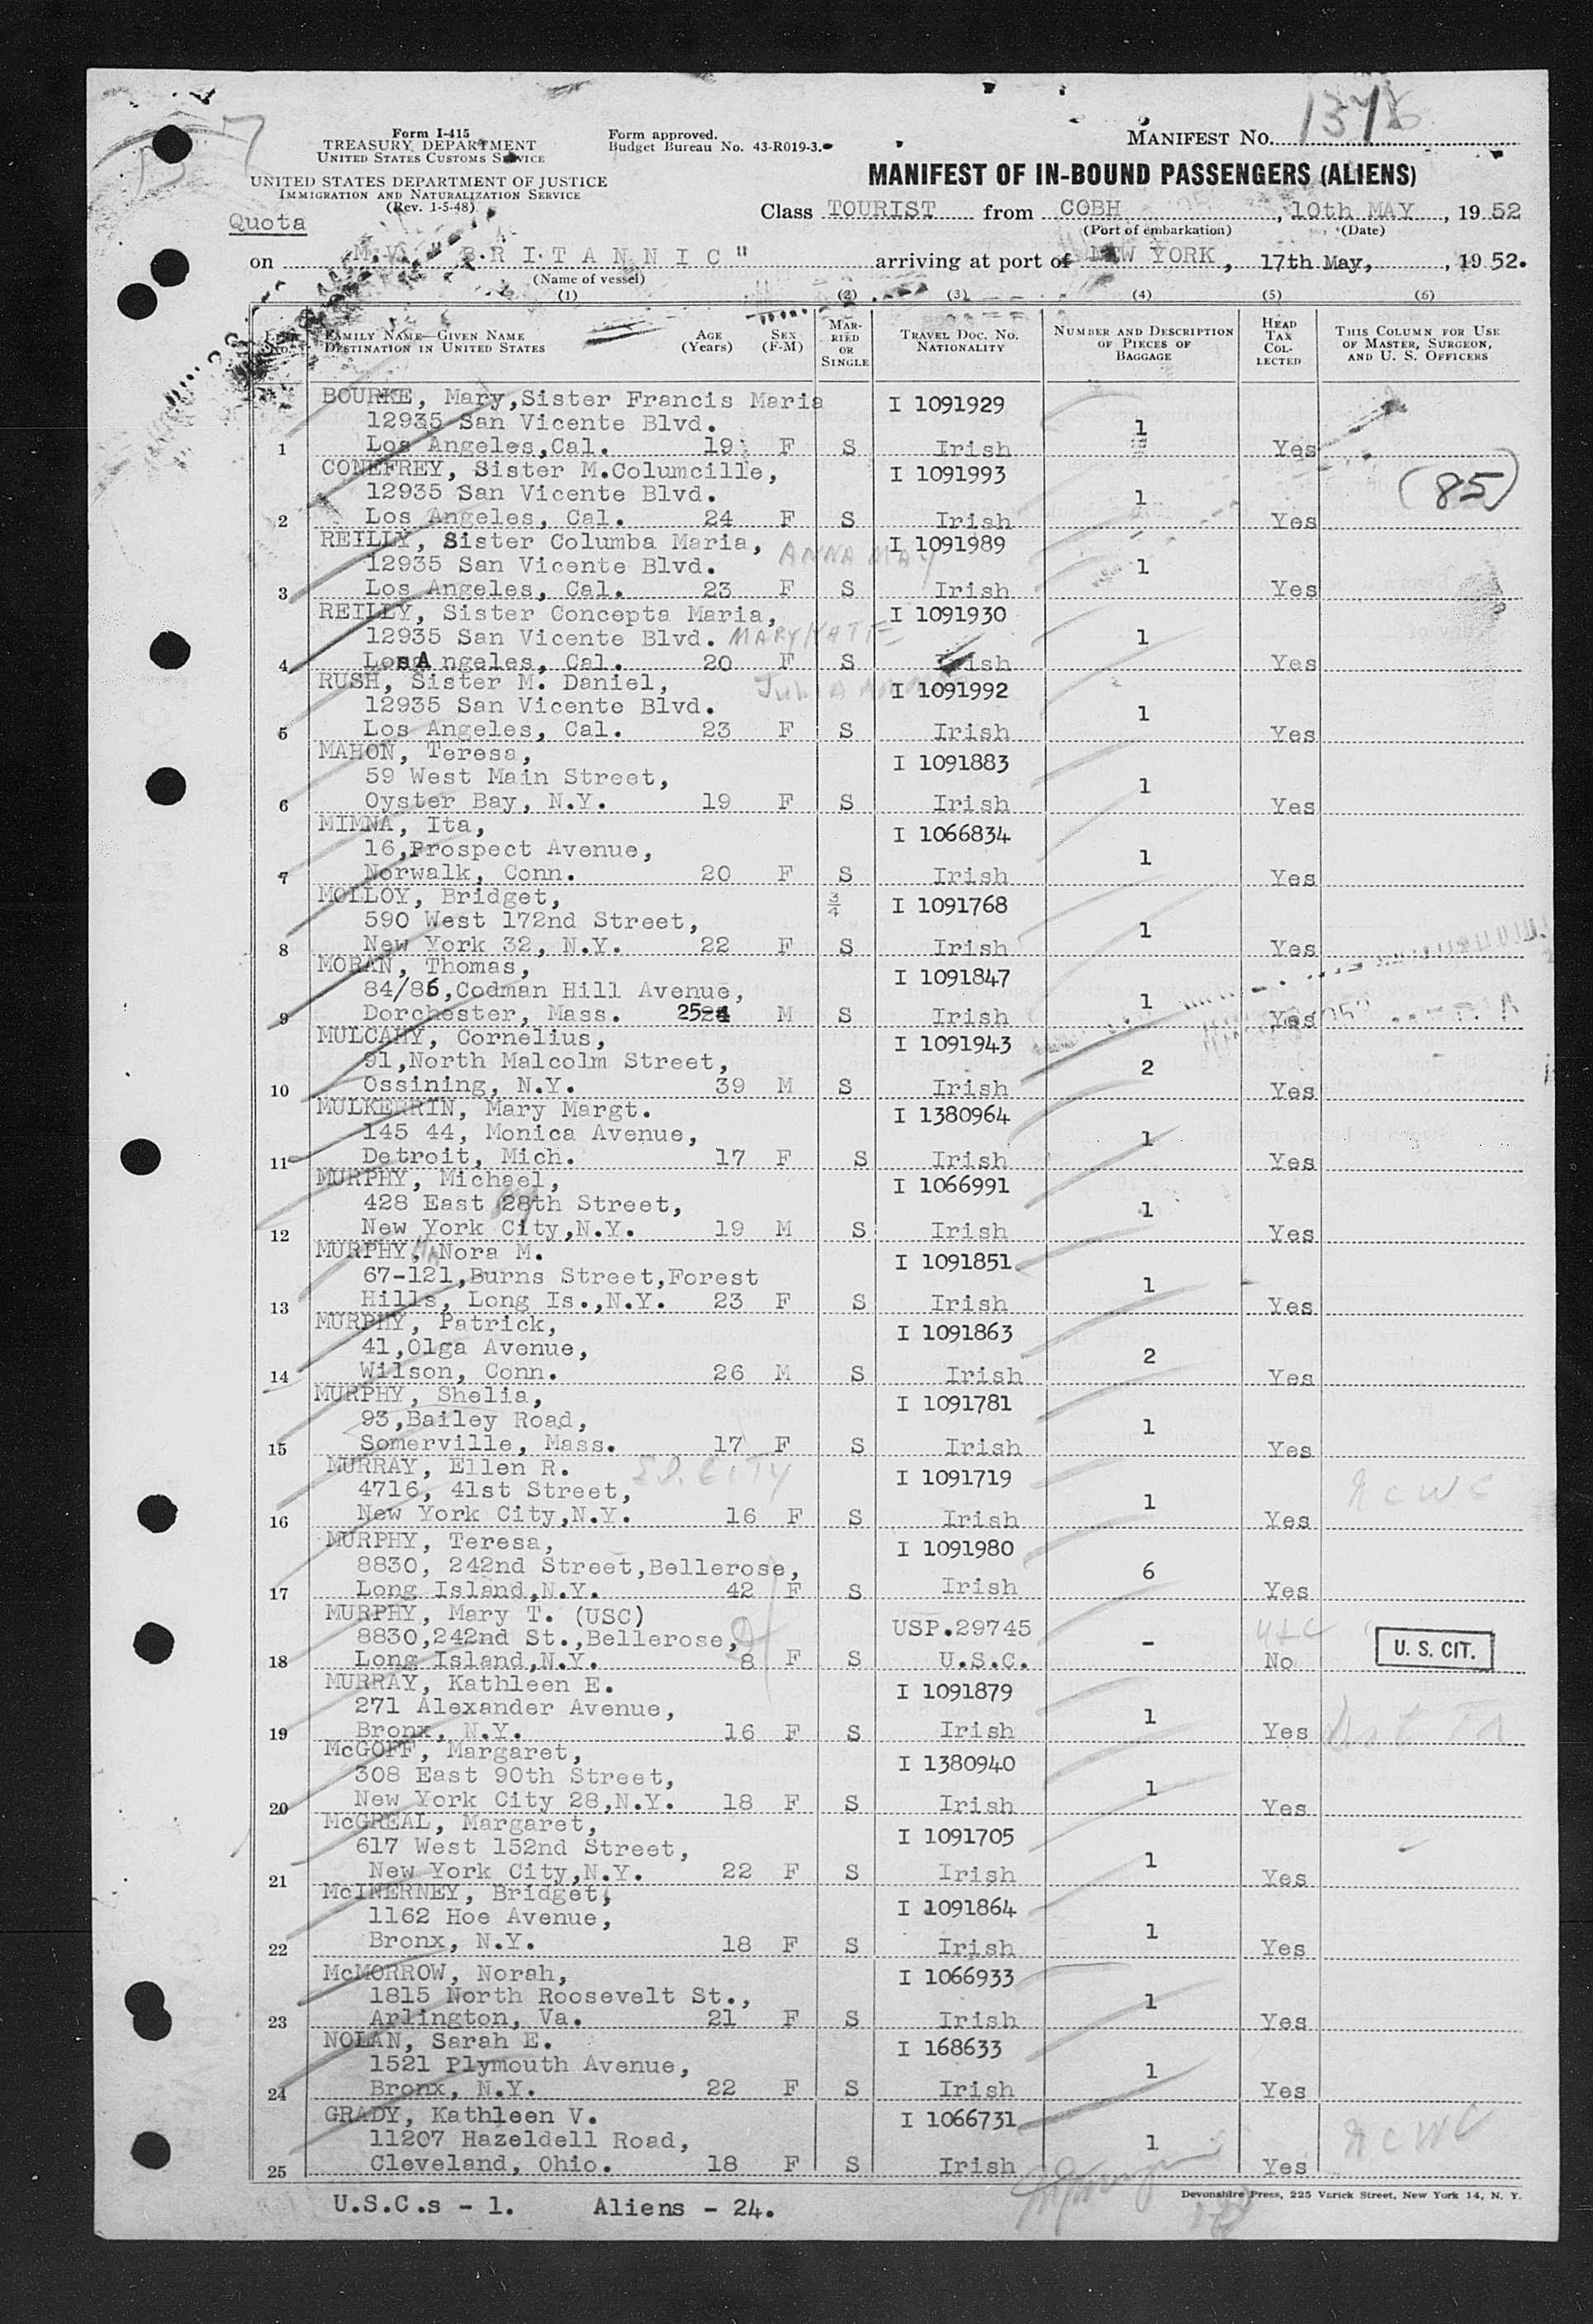 Form I-415
TREASURY DEPARTMENT
UNITED STATES CUSTOMS SERVICE
UNITED STATES DEPARTMENT OF JUSTICE
IMMIGRATION AND NATURALIZATION SERVICE
(Rev. 1-5-48)
Quota
Form approved.
Budget Bureau No. 43-R019-3.
MANIFEST No.
MANIFEST OF IN-BOUND PASSENGERS (ALIENS)
Class TOURIST from COBH, 10th MAY, 1952
(Port of embarkation) (Date)
on M.V. "BRITANNIC" arriving at port of NEW YORK, 17th May, 1952.
(Name of vessel)
(1) (2) (3) (4) (5) (6)
LINE No. FAMILY NAME—GIVEN NAME DESTINATION IN UNITED STATES AGE (Years) SEX (F-M) MARRIED OR SINGLE TRAVEL DOC. NO. NATIONALITY NUMBER AND DESCRIPTION OF PIECES OF BAGGAGE HEAD TAX COLLECTED THIS COLUMN FOR USE OF MASTER, SURGEON, AND U. S. OFFICERS
BOURKE, Mary, Sister Francis Maria I 1091929
12935 San Vicente Blvd. 1
1 Los Angeles, Cal. 19 F S Irish Yes
CONEFREY, Sister M.Columcille, I 1091993
12935 San Vicente Blvd. 1 (85)
2 Los Angeles, Cal. 24 F S Irish Yes
REILLY, Sister Columba Maria, ANNA MAY I 1091989
12935 San Vicente Blvd. 1
3 Los Angeles, Cal. 23 F S Irish Yes
REILLY, Sister Concepta Maria, I 1091930
12935 San Vicente Blvd. MARY KATE 1
4 Los Angeles, Cal. 20 F S Irish Yes
RUSH, Sister M. Daniel, JULIA I 1091992
12935 San Vicente Blvd. 1
5 Los Angeles, Cal. 23 F S Irish Yes
MAHON, Teresa, I 1091883
59 West Main Street, 1
6 Oyster Bay, N.Y. 19 F S Irish Yes
MIMNA, Ita, I 1066834
16, Prospect Avenue, 1
7 Norwalk, Conn. 20 F S Irish Yes
MOLLOY, Bridget, 3/4 I 1091768
590 West 172nd Street, 1
8 New York 32, N.Y. 22 F S Irish Yes
MORAN, Thomas, I 1091847
84/86, Codman Hill Avenue, 1
9 Dorchester, Mass. 25 M S Irish Yes
MULCAHY, Cornelius, I 1091943
91, North Malcolm Street, 2
10 Ossining, N.Y. 39 M S Irish Yes
MULKERRIN, Mary Margt. I 1380964
145 44, Monica Avenue, 1
11 Detroit, Mich. 17 F S Irish Yes
MURPHY, Michael, I 1066991
428 East 28th Street, 1
12 New York City, N.Y. 19 M S Irish Yes
MURPHY, Nora M. I 1091851
67-121, Burns Street, Forest 1
13 Hills, Long Is., N.Y. 23 F S Irish Yes
MURPHY, Patrick, I 1091863
41, Olga Avenue, 2
14 Wilson, Conn. 26 M S Irish Yes
MURPHY, Shelia, I 1091781
93, Bailey Road, 1
15 Somerville, Mass. 17 F S Irish Yes
MURRAY, Ellen R. I 1091719
4716, 41st Street, 1 NCWC
16 New York City, N.Y. 16 F S Irish Yes
MURPHY, Teresa, I 1091980
8830, 242nd Street, Bellerose, 6
17 Long Island, N.Y. 42 F S Irish Yes
MURPHY, Mary T. (USC) USP.29745
8830, 242nd St., Bellerose, - U. S. CIT.
18 Long Island, N.Y. 8 F S U.S.C. No
MURRAY, Kathleen E. I 1091879
271 Alexander Avenue, 1
19 Bronx, N.Y. 16 F S Irish Yes
McGOFF, Margaret, I 1380940
308 East 90th Street, 1
20 New York City 28, N.Y. 18 F S Irish Yes
McGREAL, Margaret, I 1091705
617 West 152nd Street, 1
21 New York City, N.Y. 22 F S Irish Yes
McINERNEY, Bridget, I 1091864
1162 Hoe Avenue, 1
22 Bronx, N.Y. 18 F S Irish Yes
McMORROW, Norah, I 1066933
1815 North Roosevelt St., 1
23 Arlington, Va. 21 F S Irish Yes
NOLAN, Sarah E. I 168633
1521 Plymouth Avenue, 1
24 Bronx, N.Y. 22 F S Irish Yes
GRADY, Kathleen V. I 1066731
11207 Hazeldell Road, 1 NCWC
25 Cleveland, Ohio. 18 F S Irish Yes
U.S.C.s - 1. Aliens - 24.
Devonshire Press, 225 Varick Street, New York 14, N. Y.